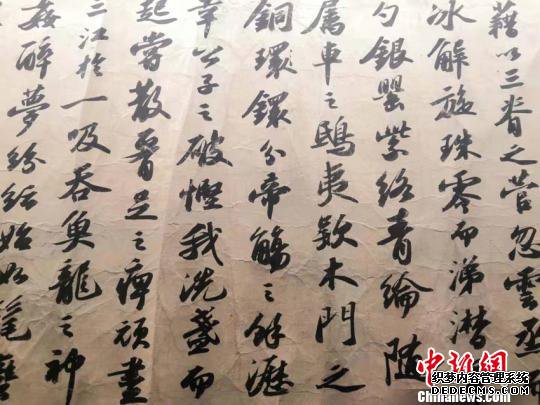 藉以三脊之菅忽雲烝而
冰解旋珠零而涕潸
勺銀罌紫絡青綸隨
屬車之鴟夷款木門之
銅環鐶分帝觴之餘瀝
幸公子之破慳我洗盞而
起嘗散腰足之痺頑盡
三江於一吸吞魚龍之神
姦醉夢紛紜始如髦蠻
中新网
chinanews.com
织梦内容管理系统
DEDECMS.COM